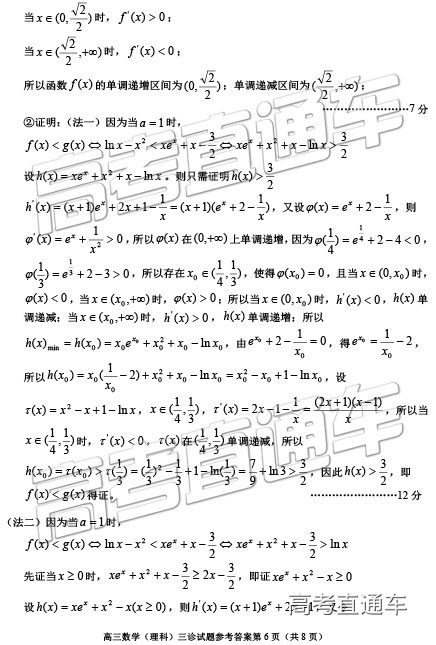 当 x∈(0, √2/2) 时，f'(x)>0；
当 x∈(√2/2,+∞) 时，f'(x)<0；
所以函数 f(x) 的单调递增区间为 (0, √2/2)；单调递减区间为 (√2/2,+∞)；
…………………………7 分
②证明：(法一) 因为当 a=1 时，
f(x)<g(x)⇔ln x−x²<xeˣ+x−3/2⇔xeˣ+x²+x−ln x>3/2
设 h(x)=xeˣ+x²+x−ln x。则只需证明 h(x)>3/2
h'(x)=(x+1)eˣ+2x+1−1/x=(x+1)(eˣ+2−1/x)，又设 φ(x)=eˣ+2−1/x，则
φ'(x)=eˣ+1/x²>0，所以 φ(x) 在 (0,+∞) 上单调递增，因为 φ(1/4)=e^(1/4)+2−4<0，
φ(1/3)=e^(1/3)+2−3>0，所以存在 x₀∈(1/4,1/3)，使得 φ(x₀)=0，且当 x∈(0,x₀) 时，
φ(x)<0，当 x∈(x₀,+∞) 时，φ(x)>0；所以当 x∈(0,x₀) 时，h'(x)<0，h(x) 单
调递减；当 x∈(x₀,+∞) 时，h'(x)>0，h(x) 单调递增；所以
h(x)min=h(x₀)=x₀e^(x₀)+x₀²+x₀−ln x₀，由 e^(x₀)+2−1/x₀=0，得 e^(x₀)=1/x₀−2，
所以 h(x₀)=x₀(1/x₀−2)+x₀²+x₀−ln x₀=x₀²−x₀+1−ln x₀，设
τ(x)=x²−x+1−ln x，x∈(1/4,1/3)，τ'(x)=2x−1−1/x=(2x+1)(x−1)/x，所以当
x∈(1/4,1/3) 时，τ'(x)<0，τ(x) 在 (1/4,1/3) 单调递减，所以
h(x₀)=τ(x₀)>τ(1/3)=(1/3)²−1/3+1−ln(1/3)=7/9+ln3>3/2，因此 h(x)>3/2，即
f(x)<g(x) 得证。 …………………………12 分
(法二) 因为当 a=1 时，
f(x)<g(x)⇔ln x−x²<xeˣ+x−3/2⇔xeˣ+x²+x−3/2>ln x
先证当 x≥0 时，xeˣ+x²+x−3/2≥2x−3/2，即证 xeˣ+x²−x≥0
设 h(x)=xeˣ+x²−x(x≥0)，则 h'(x)=(x+1)eˣ+2x−1，
高三数学（理科）三诊试题参考答案第 6 页（共 8 页）
高考直通车
高考直通车
高考直通车